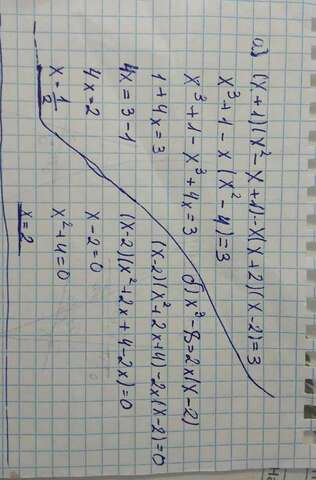 а) (x+1)(x²-x+1)-x(x+2)(x-2)=3
x³+1-x(x²-4)=3
x³+1-x³+4x=3
1+4x=3
4x=3-1
4x=2
x=1/2
б) x³-8=2x(x-2)
(x-2)(x²+2x+4)-2x(x-2)=0
(x-2)(x²+2x+4-2x)=0
x-2=0
x²+4=0
x=2